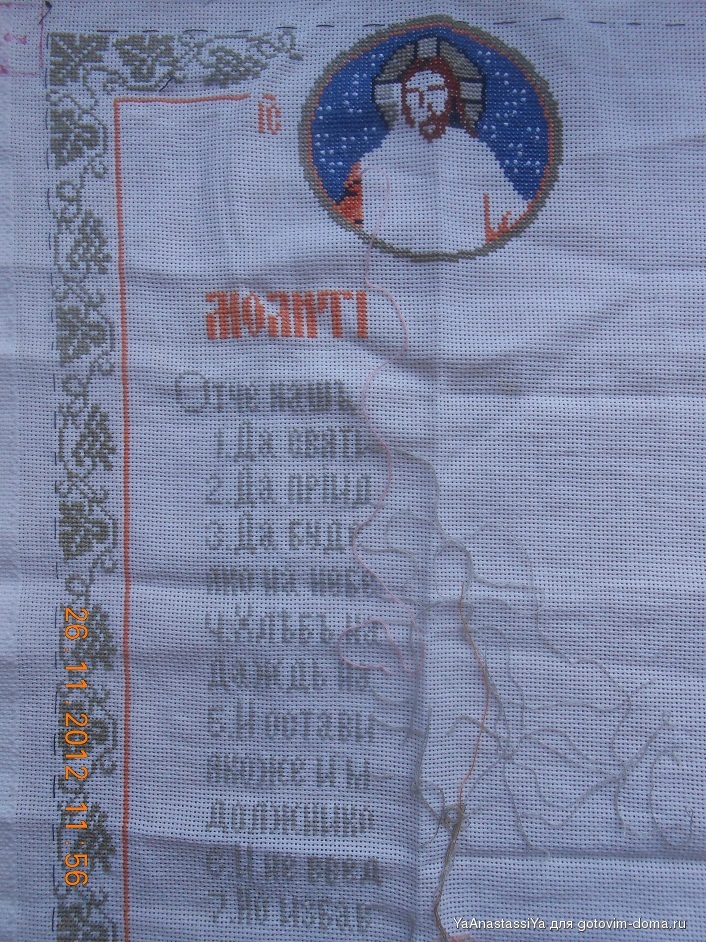 ІС
Отче нашъ
1.Да свати
2.Да прїид
3.Да буд
ако на небе
4.Хлѣбъ на
даждь на
5.И остави
акоже и
должнико
6.И не введ
7.Но избав
26 11 2012 11 56
YaAnastassiYa для gotovim-doma.ru